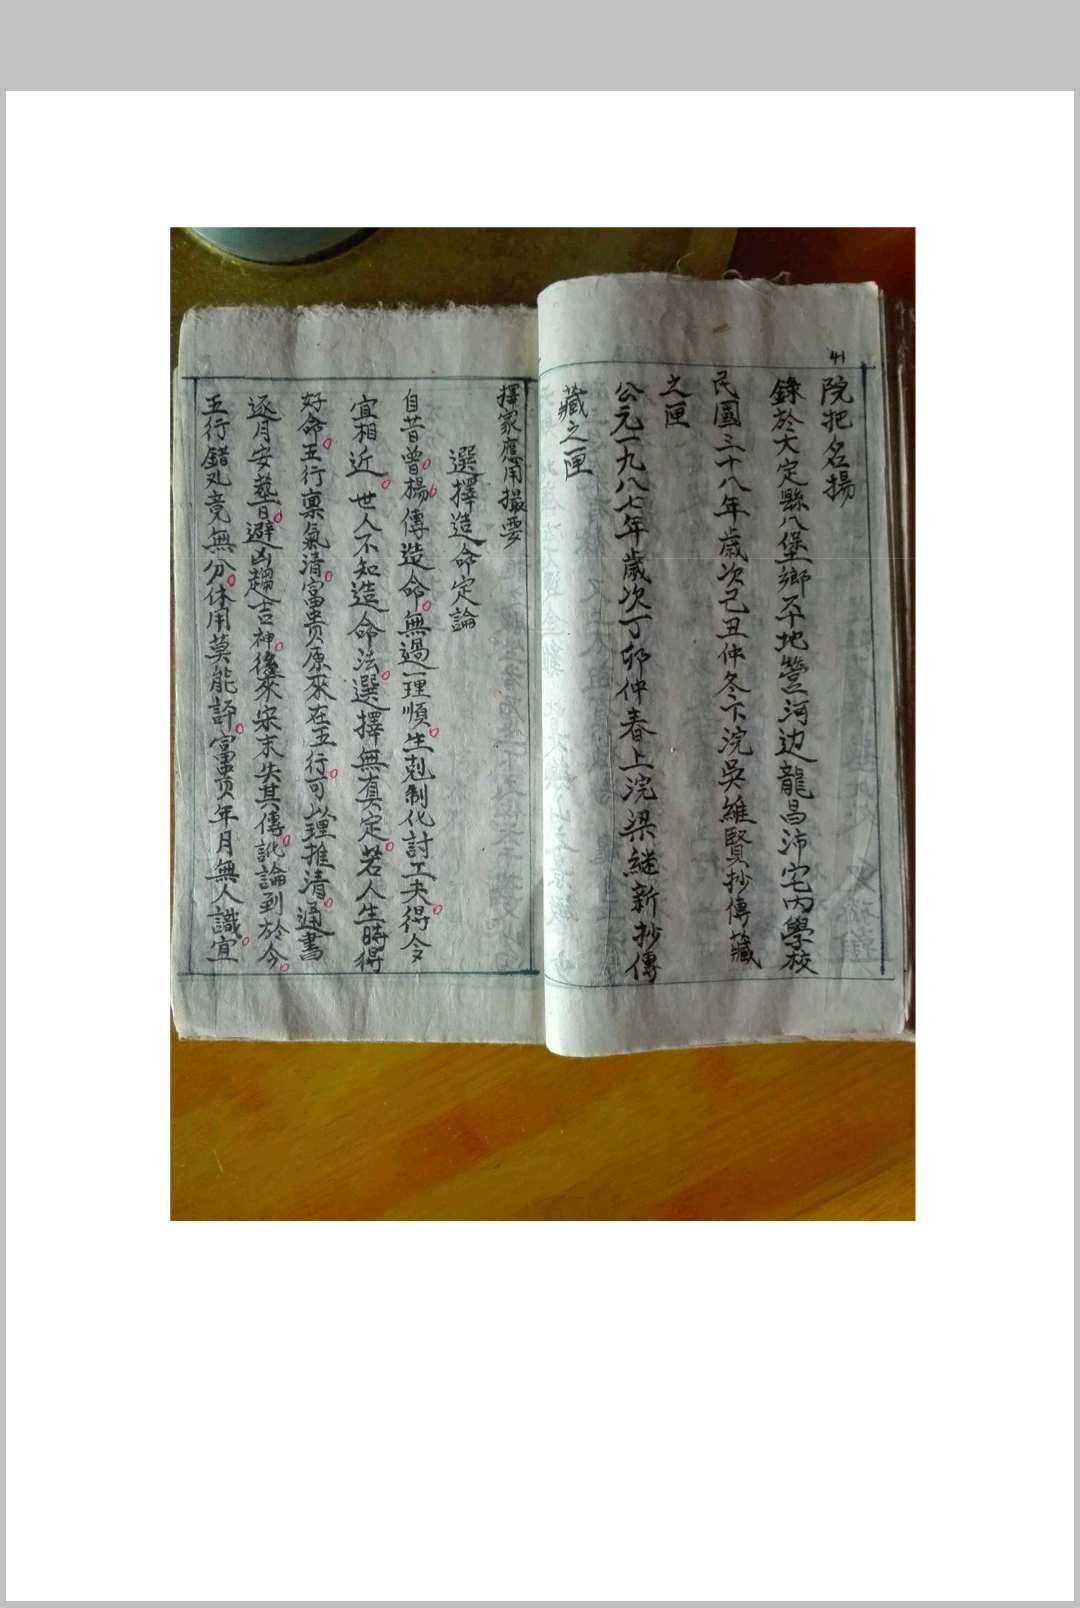 41
院把名揚
錄於大定縣八堡鄉平地營河边龍昌沛宅内學校
民國三十八年歲次己丑仲冬下浣吳維賢抄傳藏
之匣
公元一九八七年歲次丁卯仲春上浣梁継新抄傳
藏之匣
擇家應用撮要
選擇造命定論
自昔曾楊傳造命。無過一理順。生剋制化討工夫。得令
宜相近。世人不知造命法。選擇無真定。若人生時得
好命。五行禀氣清。富贵原來在五行。可以理推清。通書
逐月安塟日。避凶趨吉神。後來宋末失其傳。訛論到於今。
五行錯乱竟無分。体用莫能評。富贵年月無人識。宜